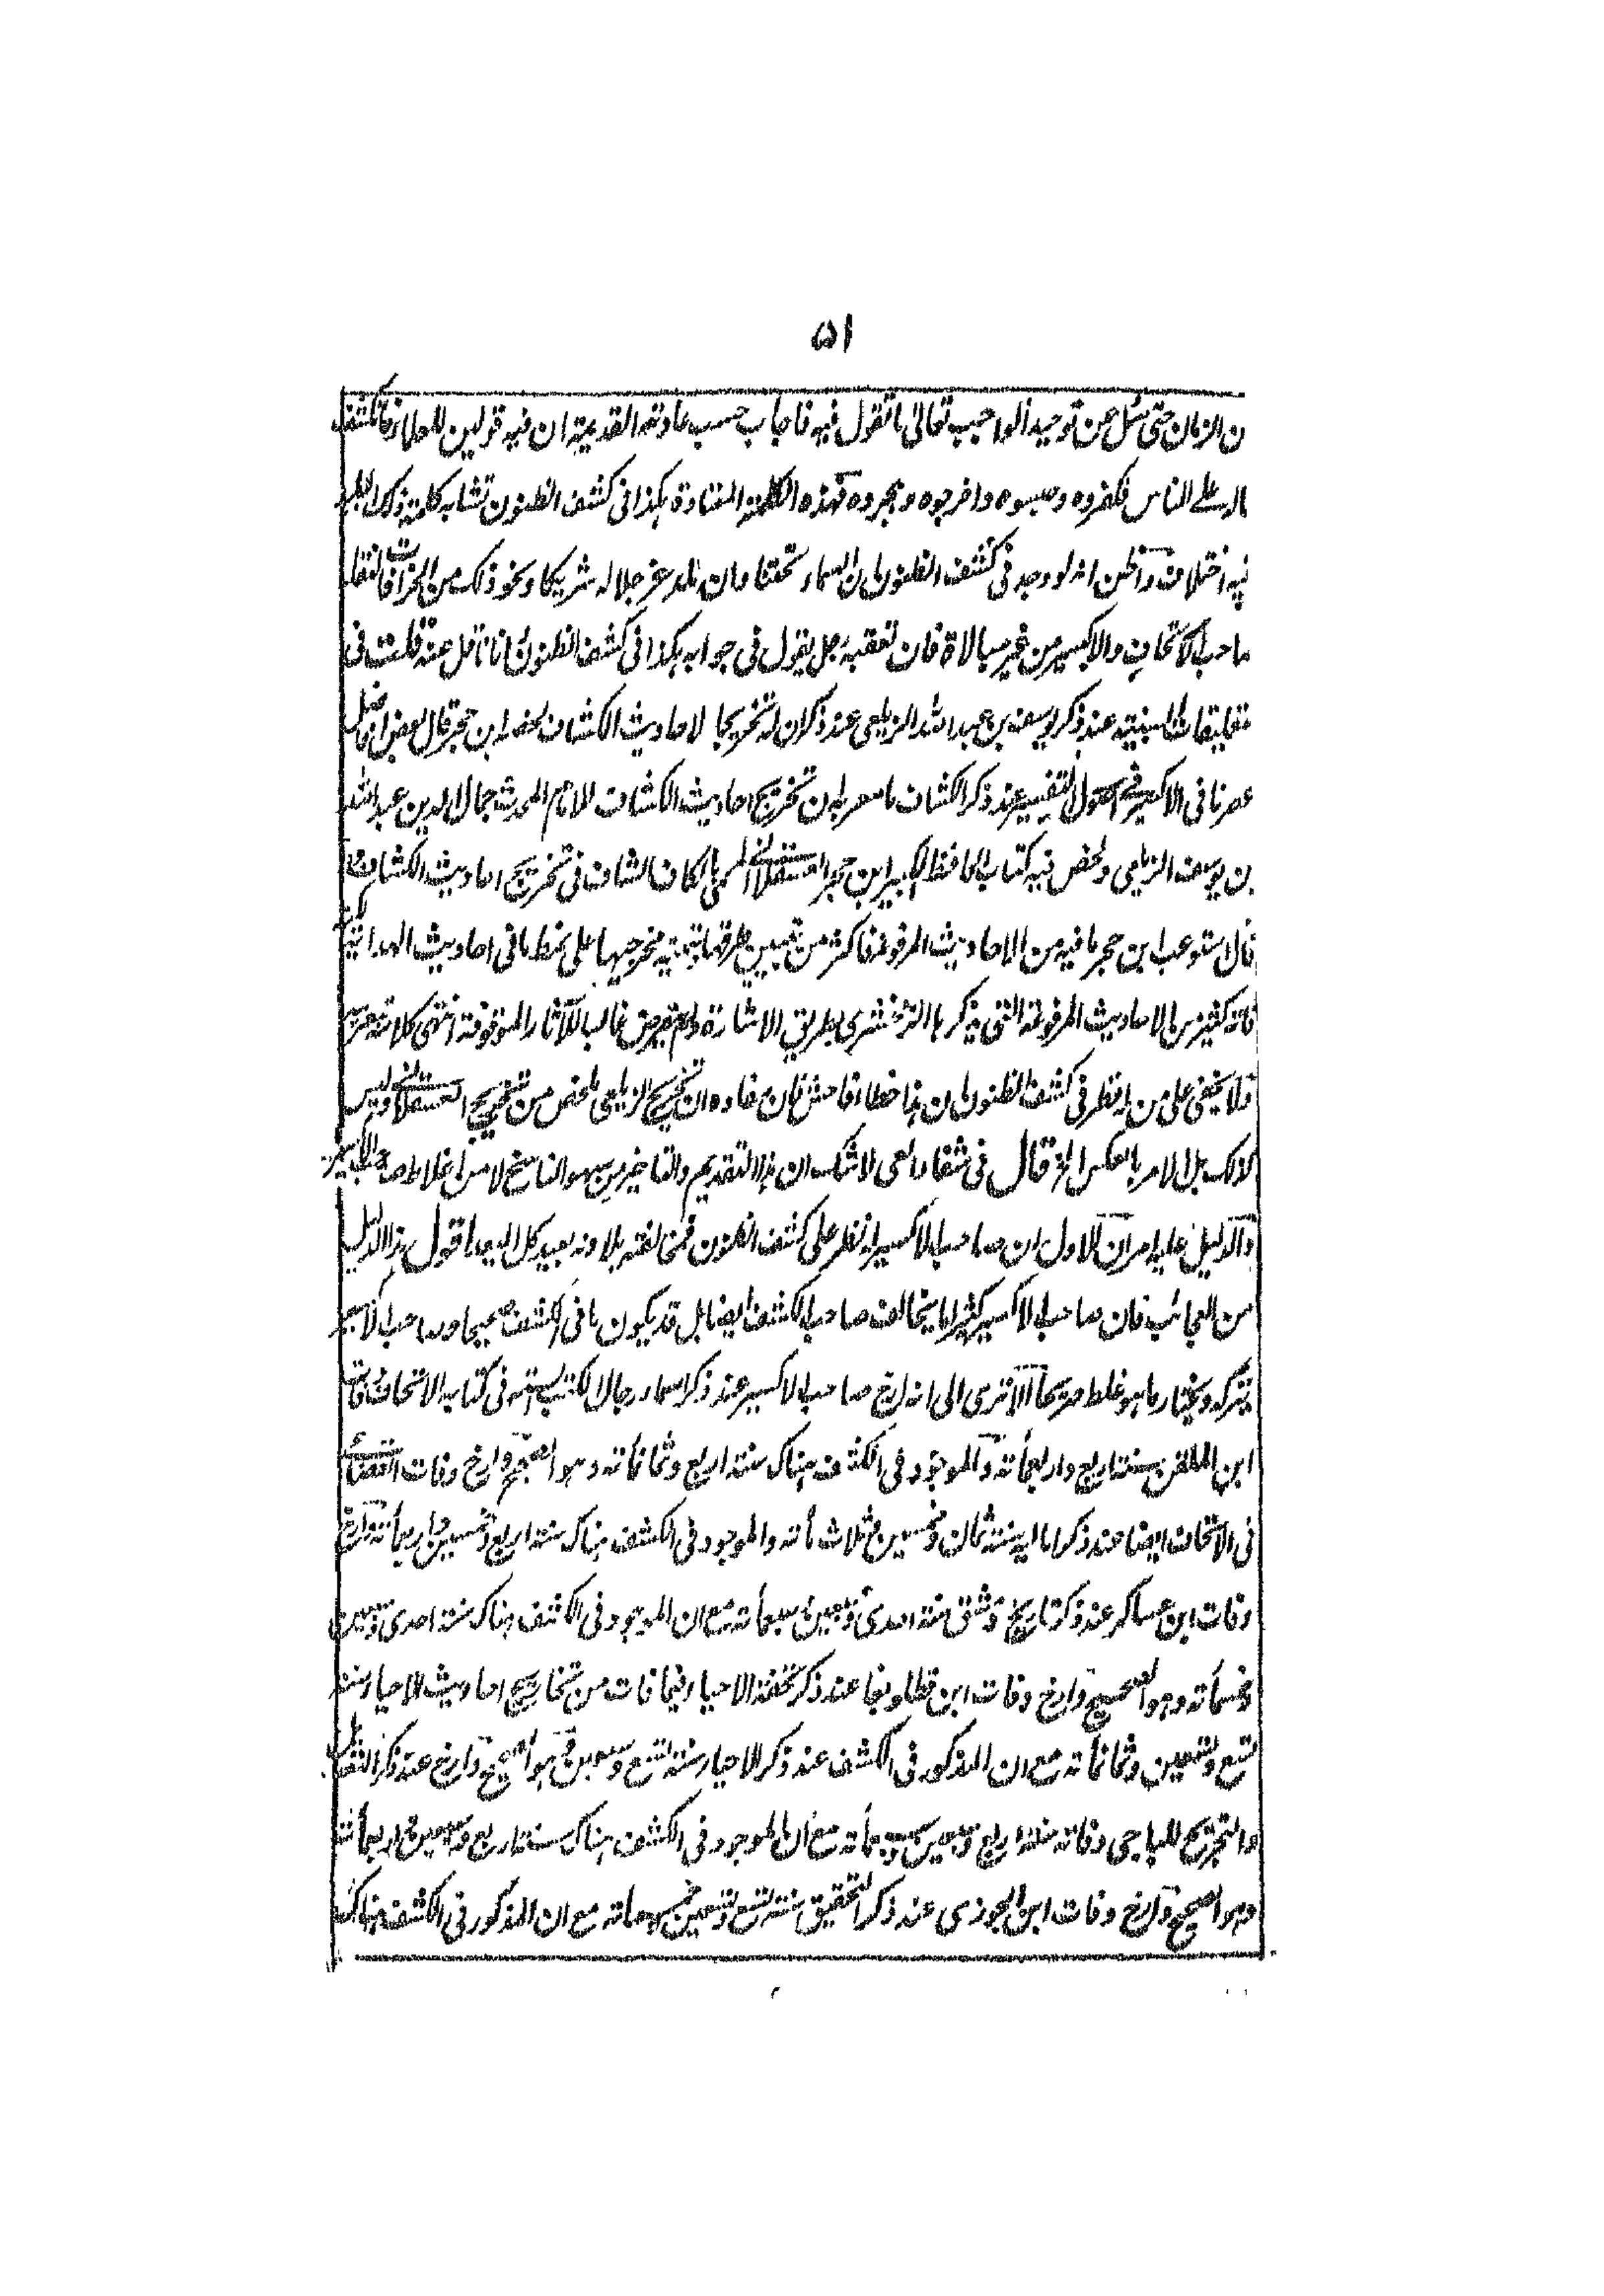 ۵۱
من الزمان حتى سئل عن توحيد الواجب تعالى ما تقول فيه فاجاب حسب عادته القديمة ان فيه قولين للعلماء فانكشف
حاله على الناس فكفروه وحبسوه واخرجوه وهجروه فهذه الكلمة المعتادة هكذا فى كشف الظنون تشابه كلمة ذلك
فيه اختلاف واظن انه لو وجد فى كشف الظنون ان السماء تحتنا وان لله عز جلاله شريكا ونحو ذلك من الخرافات لنقله
صاحب الاتحاف والاكسير من غير مبالاة فان تعقبه رجل يقول فى جوابه هكذا فى كشف الظنون انا ناقل عنه قلت فى
تعليقات السنية عند ذكر يوسف بن عبد الله الزيلعى عند ذكر ان له تخريجا لاحاديث الكشاف لخصه ابن حجر قال بعض افاضل
عصرنا فى الاكسير فى اصول التفسير عند ذكر الكشاف ما معربه ان تخريج احاديث الكشاف للامام المحدث جمال الدين عبد الله
بن يوسف الزيلعى ولخص فيه كتاب الحافظ الكبير ابن حجر العسقلانى المسمى بالكاف الشاف فى تخريج احاديث الكشاف
قال استوعب ابن حجر ما فيه من الاحاديث المرفوعة فاكثر من تبيين طرقها وتسمية مخرجيها على نمط ما فى احاديث الهداية
فاته كثير من الاحاديث المرفوعة التى يذكرها الزمخشرى بطريق الاشارة ولم يتعرض غالبا للآثار الموقوفة انتهى كلامه معربا
ولا يخفى على من له نظر فى كشف الظنون ان هذا خطأ فاحش فان مفاده ان تخريج الزيلعى ملخص من تخريج العسقلانى وليس
كذلك بل الامر بالعكس الخ قال فى شفاء العى لا شك ان هذا التقديم والتاخير من سهو الناسخ لا من اغلاط صاحب الاكسير
والدليل عليه امران الاول ان صاحب الاكسير له نظر على كشف الظنون فمخالفته بلا وجه بعيد كل البعد اقول هذا الدليل
من العجائب فان صاحب الاكسير كثيرا ما يخالف صاحب الكشف ايضا بل قد يكون ما فى الكشف صحيحا وصاحب الاكسير
يتركه ويختار ما هو غلط صريحا الا ترى الى انه ارخ صاحب الاكسير عند ذكر اسماء رجال الكتب الستة فى كتابه الاتحاف وفات
ابن الملقن سنة اربع واربعمأته والموجود فى الكشف هناك سنة اربع وثمانمأته وهو الصحيح وارخ وفات القضاعى
فى الاتحاف ايضا عند ذكر اماليه سنة ثمان وخمسين وثلاث مأته والموجود فى الكشف هناك سنة اربع وخمسين واربعمأته وارخ
وفات ابن عساكر عند ذكر تاريخ دمشق سنة احدى وسبعين وسبعمأته مع ان الموجود فى الكشف هناك سنة احدى وسبعين
وخمسمأته وهو الصحيح وارخ وفات ابن قطلوبغا عند ذكر تحفة الاحياء فيما فات من تخاريج احاديث الاحياء سنة
تسع وتسعين وثمانمأته مع ان المذكور فى الكشف عند ذكر الاحياء سنة تسع وسبعين وهو الصحيح وارخ عند ذكر التعديل
والتجريح للباجى وفاته سنة اربع وسبعين وسبعمأته مع ان الموجود فى الكشف هناك سنة اربع وسبعين واربعمأته
وهو الصحيح وارخ وفات ابن الجوزى عند ذكر التحقيق سنة تسع وتسعين وخمسمأته مع ان المذكور فى الكشف هناك